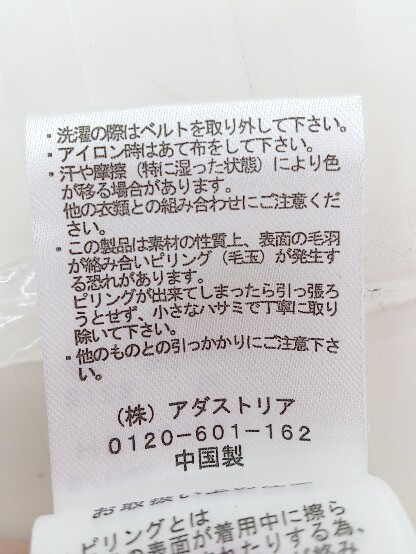 ・洗濯の際はベルトを取り外して下さい。
・アイロン時はあて布をして下さい。
・汗や摩擦（特に湿った状態）により色
が移る場合があります。
他の衣類との組み合わせにご注意くだ
さい。
・この製品は素材の性質上、表面の毛羽
が絡み合いピリング（毛玉）が発生す
る恐れがあります。
ピリングが出来てしまったら引っ張ろ
うとせず、小さなハサミで丁寧に取り
除いて下さい。
・他のものとの引っかかりにご注意下さ
い。
（株）アダストリア
0120-601-162
中国製
ピリングとは
の表面が着用中に擦ら
たりする為、